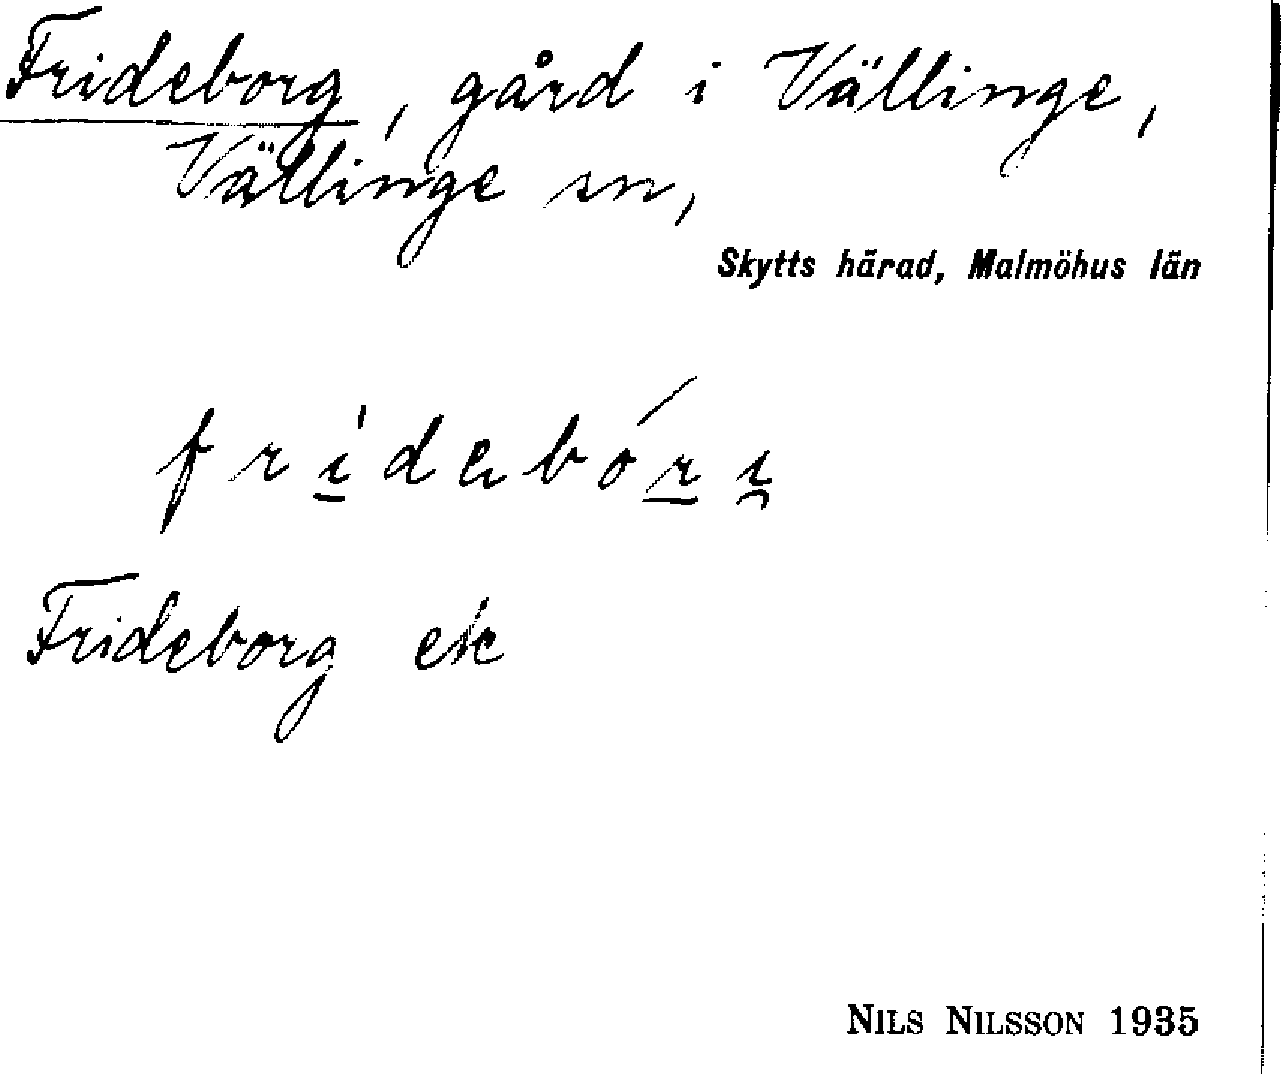 Frideborg, gård i Vällinge,
Vällinge sn,
Skytts härad, Malmöhus län
Frideborg ek
NILS NILSSON 1935